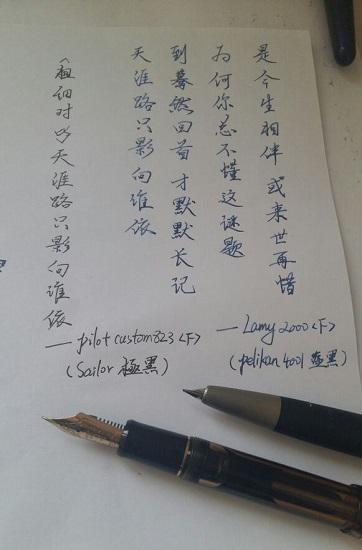 是今生相伴 或来世再惜
为何你总不懂这谜题
到蓦然回首 才默默长记
天涯路只影向谁依
——Lamy 2000 <F>
(pelikan 4001 蓝黑)
(粗细对比天涯路只影向谁依
——pilot custom 823 <F>
(Sailor 極黑)